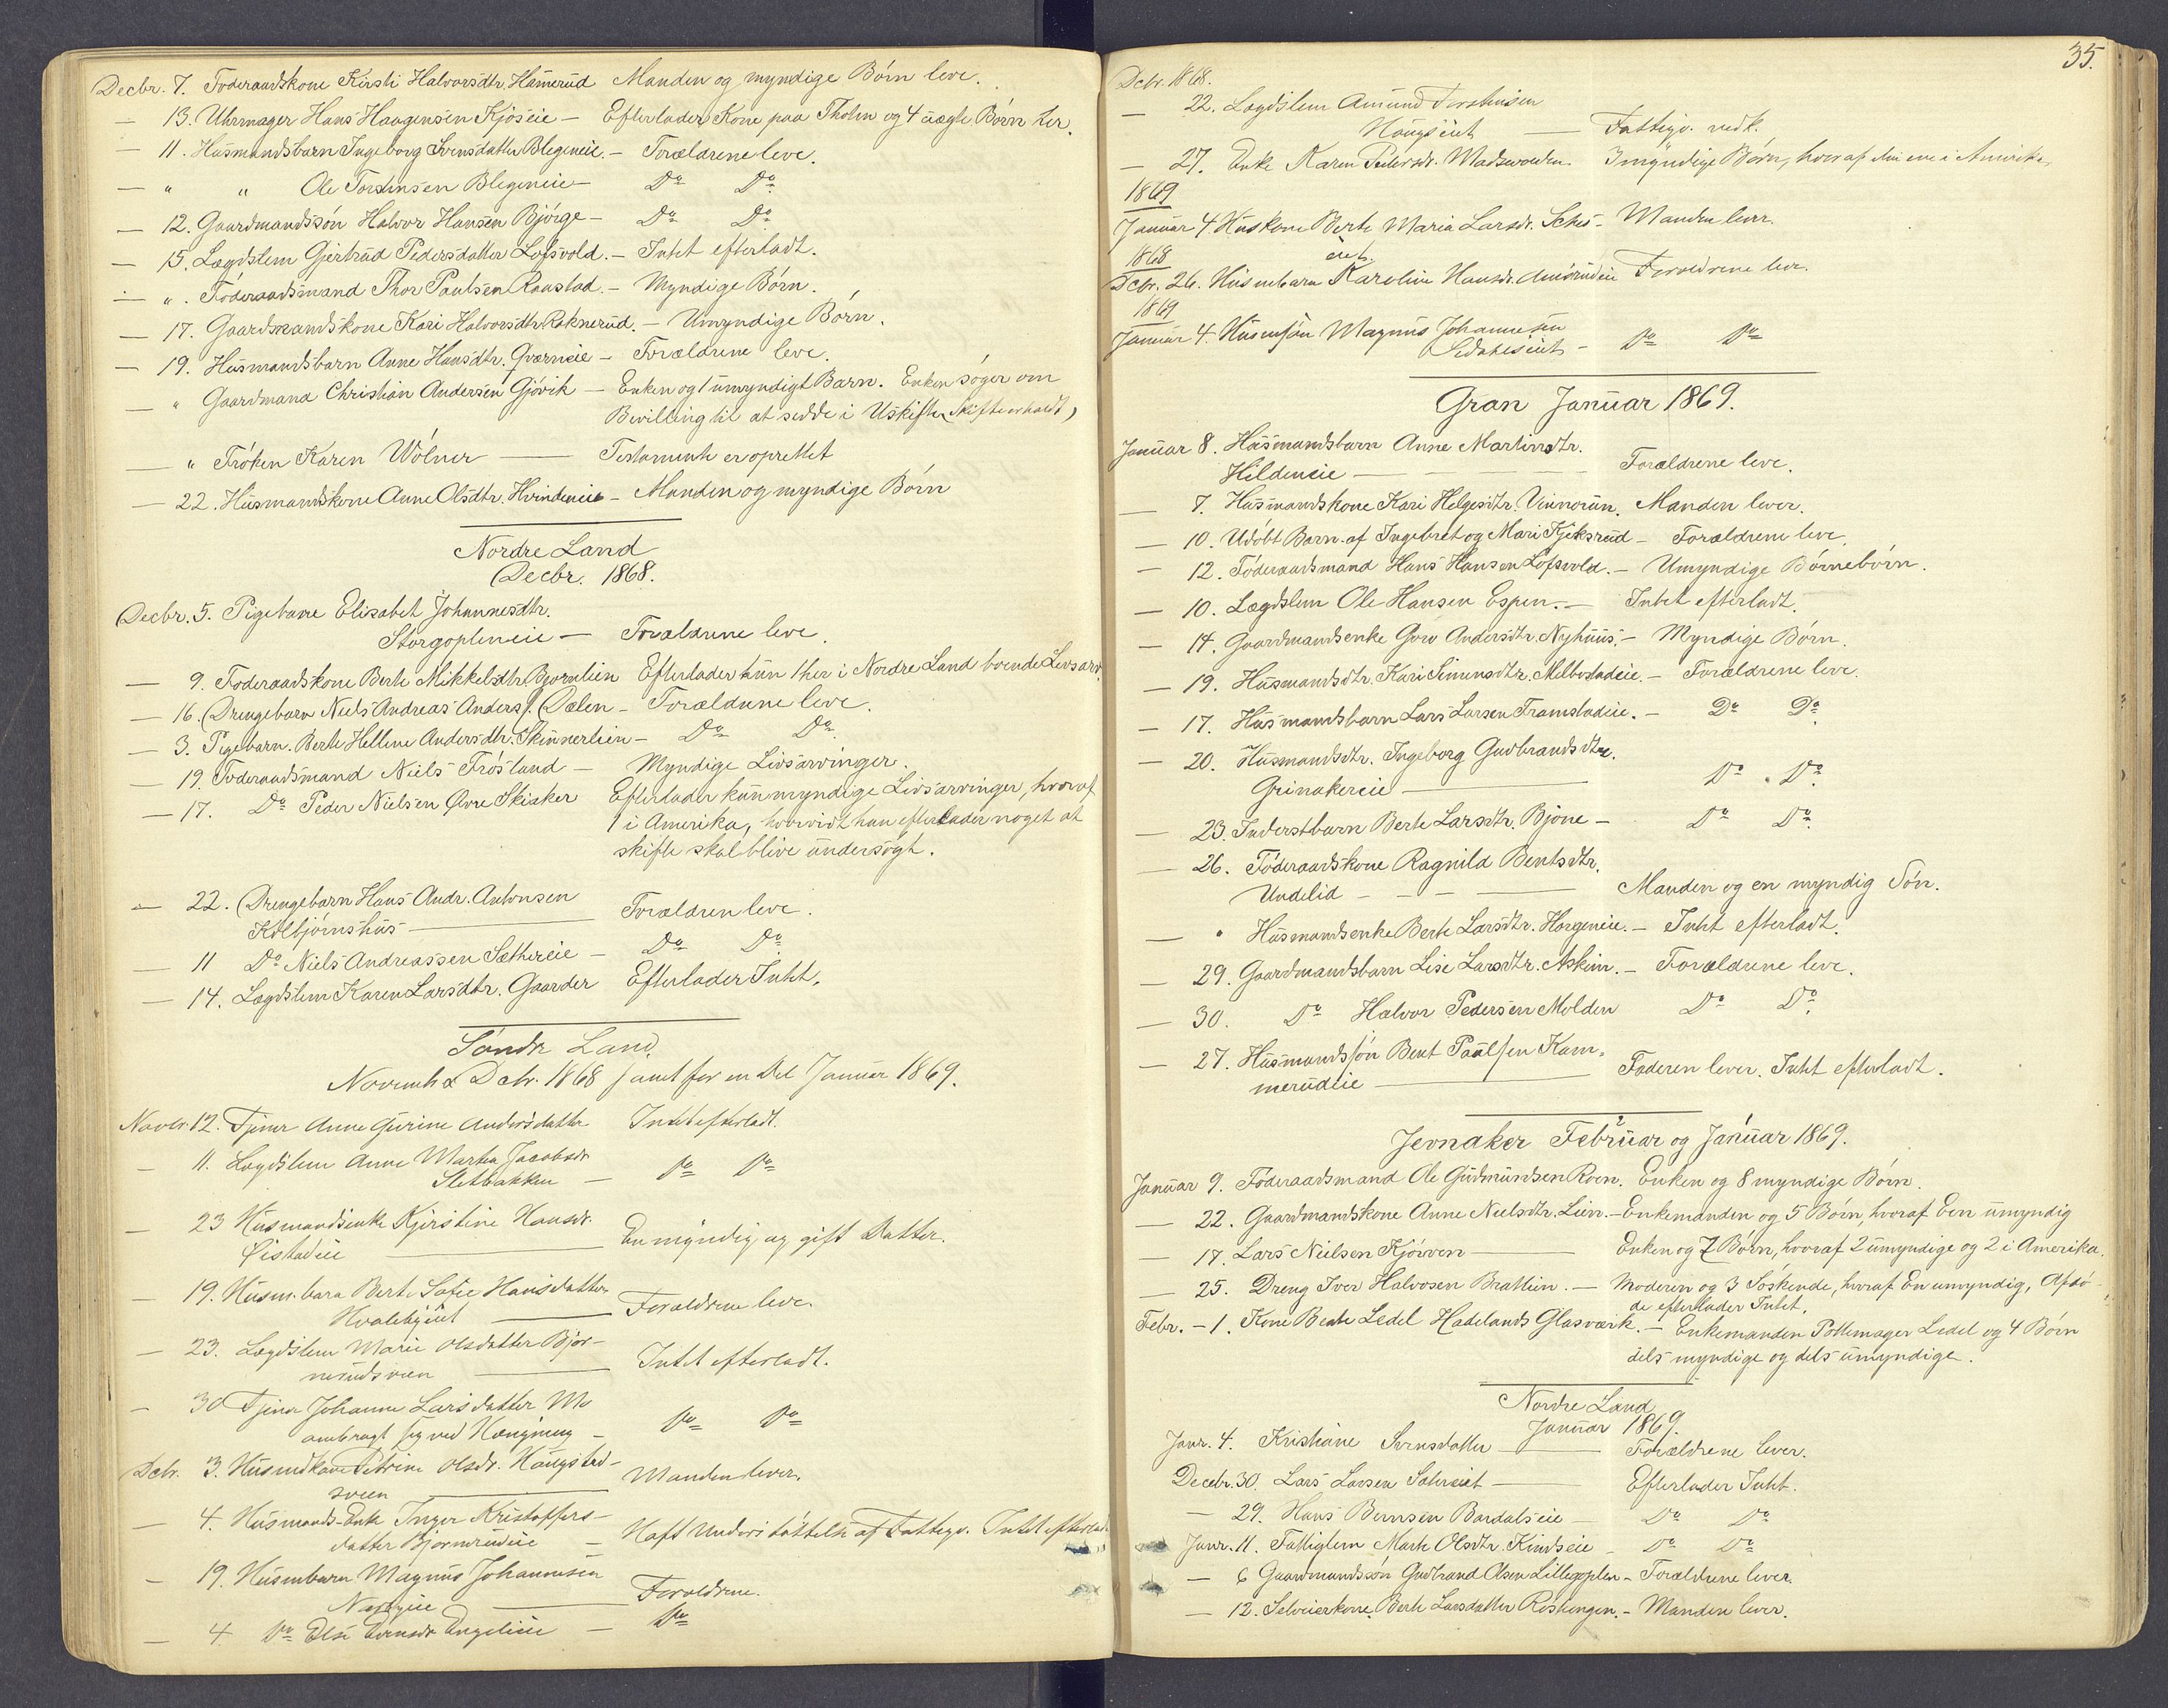 Decbr. 7. Föderaadskone Kirsti Halvorsdtr. Hamerud Manden og myndige Börn leve.
— 13. Uhrmager Hans Haagensen Kjöseie — Efterlader Kone paa Tholn og 4 uægte Börn her.
— 11. Husmandsbarn Ingeborg Svensdatter Blegeneie. — Forældrene leve.
— " " Ole Torstensen Blegeneie — Do Do
— 12. Gaardmandssön Halvor Hansen Björge — Do Do
— 15. Lægdslem Gjertrud Pedersdatter Lofsvold. — Intet efterladt.
— ". Föderaadsmand Thor Paulsen Raastad. — Myndige Börn.
— 17. Gaardmandskone Kari Halvorsdtr. Raknerud. — Umyndige Börn.
— 19. Husmandsbarn Anne Hansdtr. Qværneie — Forældrene leve.
— " Gaardmand Christian Andersen Gjövik — Enken og 1 umyndigt Barn. Enken söger om
Bevilling til at sidde i Uskiftet
— " Fröken Karen Wölner — Testamente er oprettet
— 22. Husmandskone Anne Olsdtr. Hvindeneie — Manden og myndige Börn
Nordre Land
Decbr. 1868.
Decbr. 5. Pigebarn Elisabet Johannesdtr.
Storgopleneie — Forældrene leve.
— 9. Föderaadskone Berte Mikkelsdtr. Bjornlien Efterlader kun 1 her i Nordre Land boende Livsarv.
— 16. Drengebarn Niels Andreas Anders. Dælen — Forældrene leve.
— 3. Pigebarn. Berte Hellene Andersdtr. Skinnerlien — Do Do
— 19. Föderaadsmand Niels Frösland — Myndige Livsarvinger.
— 17. Do Peder Nielsen Övre Skiaker Efterlader kun myndige Livsarvinger, hvoraf
1 i Amerika, hvorvidt han efterlader noget at
skifte skal blive undersögt.
— 22. Drengebarn Hans Andr. Antonsen
Kolbjörnshus — Forældren leve.
— 11 Do Niels Andreassen Sæthereie — Do Do
— 14. Lægdslem Karen Larsdtr. Gaarder Efterlader Intet.
Söndr Land.
Novemb. & Dcbr. 1868 samt for en Del Januar 1869.
Novbr. 12. Tjener Anne Gurine Andersdatter Intet efterladt.
— 11. Lægdslem Anne Marthea Jacobsdr
Sletbakken — Do Do
— 23 Husmandsenke Kjerstine Hansdr.
Öistadeie — En myndig og gift Datter.
— 19. Husm. barn Berte Sofie Hansdatter
Hvalebyeiet — Forældrene leve.
— 23. Lægdslem Marie Olsdatter Bjor-
nerudsveen — Intet efterladt.
— 30 Tjener Johanne Larsdatter
ombragt sig ved Hængning — Do Do
Dcbr. 3. Husmdkone Petrine Olsdr. Haugsted-
sveen — Manden lever.
— 4. Husmands-Enke Inger Kristoffers-
datter Bjornerudeie — Haft Understöttelse af Fattigv. Intet efterlad.
— 19. Husmbarn Magnus Johannesen
— Forældrene.
— 4 Do Else Evensdr Engelieie — Do
35.
Dcbr. 1868.
— 22. Lægdslem Amund Torstensen
Haugseiet — Fattigv. vedk.
— 27. Enke Karen Pedersdr. Madsvolden 3 myndige Börn, hvoraf den ene i Amerika,
1869
Januar 4. Huskone Berte Maria Larsdr. — Manden lever.
eiet.
1868
Dcbr. 26. Husmbarn Karoline Hansdr. Amörudeie Forældrene leve.
1869
Januar 4. Husmsön Magnus Johannesen
— Do Do
Gran Januar 1869.
Januar 8. Husmandsbarn Anne Martinsdtr.
Hildeneie — Forældrene leve.
— 7. Husmandskone Kari Helgesdtr. Vinnorun. Manden lever.
— 10. Udöbt Barn af Ingebret og Mari Kjeksrud — Forældrene leve.
— 12. Föderaadsmand Hans Hansen Lofsvold. — Umyndige Börnebörn.
— 10. Lægdslem Ole Hansen Espen. — Intet efterladt.
— 14. Gaardmandsenke Goro Andersdtr. Nyhuus. — Myndige Börn.
— 19. Husmandsdtr. Kari Simensdtr. Melbostadeie. — Forældrene leve.
— 17. Husmandsbarn Lars Larsen Framstadeie. — Do Do
— 20. Husmandsdtr. Ingeborg Gudbrandsdtr.
Grinakereie — Do Do
— 23. Inderstbarn Berte Larsdtr. Bjone — Do Do
— 26. Föderaadskone Ragnild Bentsdtr.
Undelid — Manden og en myndig Sön.
— " Husmandsenke Berte Larsdtr. Horgeneie. — Intet efterladt.
— 29. Gaardmandsbarn Lise Larsdtr. Askim. — Forældrene leve.
— 30. Do Halvor Pedersen Molden Do Do
— 27. Husmandssön Bent Paulsen Kam-
merudeie — Faderen lever. Intet efterladt.
Jevnaker Februar og Januar 1869.
Januar 9. Föderaadsmand Ole Gudmundsen Roen. Enken og 8 myndige Börn.
— 22. Gaardmandskone Anne Nielsdtr. Lien. — Enkemanden og 5 Börn, hvoraf Een umyndig
— 17. Lars Nielsen Kjörven — Enken og 7 Börn, hvoraf 2 umyndige og 2 i Amerika.
— 25. Dreng Iver Halvosen Brattlien. — Moderen og 3 Söskende, hvoraf En umyndig, Afdö-
de efterlader Intet.
Febr. — 1. Kone Beate Ledel Hadelands Glasværk. — Enkemanden Pottemager Ledel og 4 Börn
dels myndige og dels umyndige.
Nordre Land
Januar 1869.
Janr. 4. Kristiane Svensdatter — Forældrene lever.
Decbr. 30. Lars Larsen Sætereiet — Efterlader Intet.
— 29. Hans Bernsen Bardalseie — Do Do
Janr. 11. Fattiglem Marte Olsdtr. Kindseie — Do Do
— 6 Gaardmandssön Gudbrand Olsen Lillegoplen — Forældrene lever.
— 12. Selveierkone Berte Larsdatter Röstengen. — Manden lever.